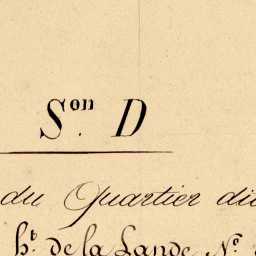 Son. D
du Quartier di
ht. de la Lande, No.